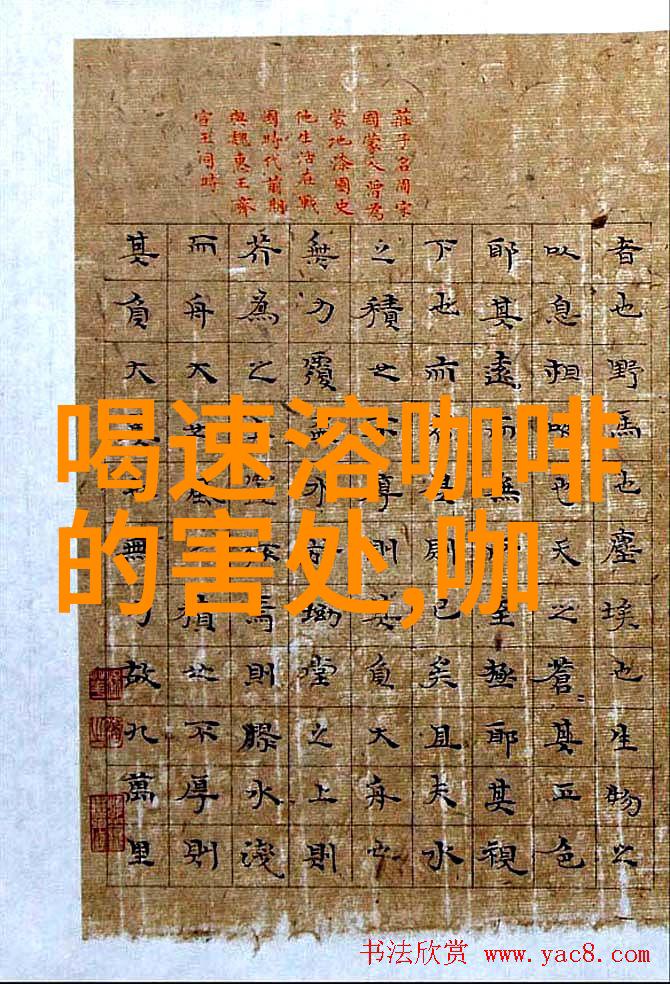 莊子名周宋
國蒙人曾為
蒙地漆園史
他生活在戰
國時代前期
與魏惠王齊
宣王同時
者也野馬也塵埃也生物之
以息相吹也天之蒼〻其正色
耶其遠而無所至極耶其視
下也而亦是則已矣且夫水
之積也不厚則其負大舟也
無力覆盃水於坳堂之上則
芥為之舟置杯焉則膠水淺
而舟大也風之積也不厚則
其負大翼也無力故九萬里
喝速溶咖啡
的害处,咖
书法欣赏 www.yac8.com